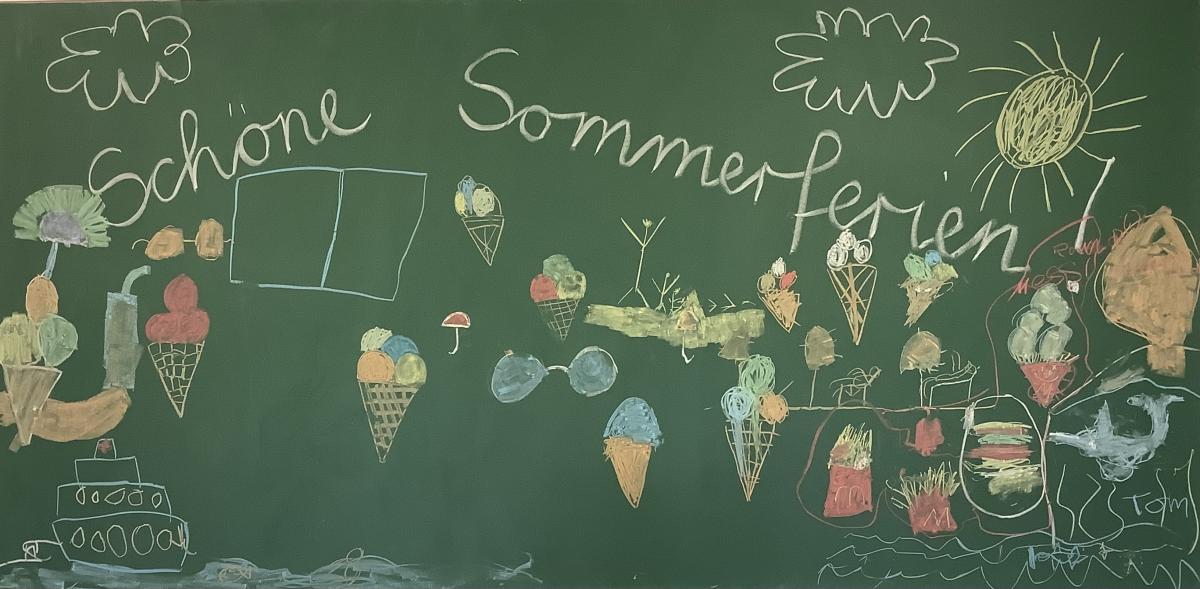 Schöne Sommerferien!
Tom
M
M